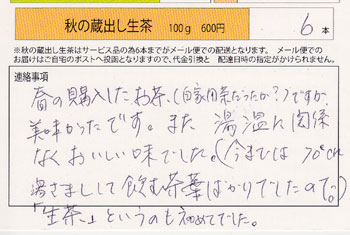 秋の蔵出し生茶 100g 600円 6本
※秋の蔵出し生茶はサービス品の為6本までがメール便での配送となります。 メール便での
お届けはご自宅のポストへ投函となりますので、代金引換と 配達日時の指定がかけられません。
連絡事項
春の購入したお茶、(自家用茶だったか?)ですが
美味かったです。また 湯温に関係
なくおいしい味でした。(今までは 70℃に
湯さましして飲む茶葉ばかりでしたので)
「生茶」というのも初めてでした。